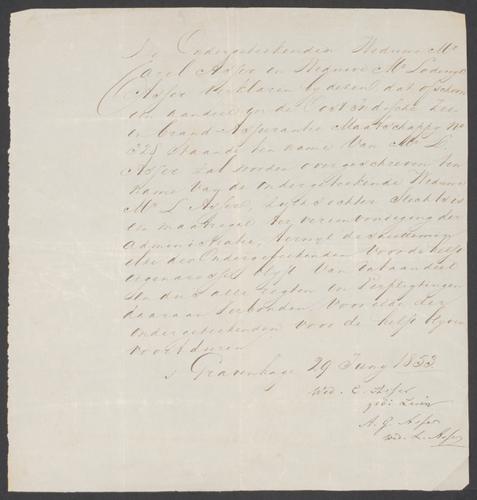 De Ondergeteekenden Weduwe Mr
Carel Asser en Weduwe Mr Lodewijk
Asser verklaren by dezen, dat ofschoon
een aandeel in de Oost Indische Zee
en Brand Assurantie Maatschappy No
325 staande ten name van Mr L.
Asser zal worden overgeschreven ten
name van de ondergeteekende Weduwe
Mr L Asser, zulks echter slechts is
een maatregel ter vereenvoudiging der
administratie, terwyl de
der Ondergeteekenden voor de helft
eigenaresse blyft van dat aandeel
en dus alle regten en verpligtingen
daaraan verbonden, voor elke der
ondergeteekenden voor de helft blyven
voortduren
s Gravenhage 29 Juny 1853
Wed. C. Asser
geb. Levin
A. G. Asser
wed. L. Asser